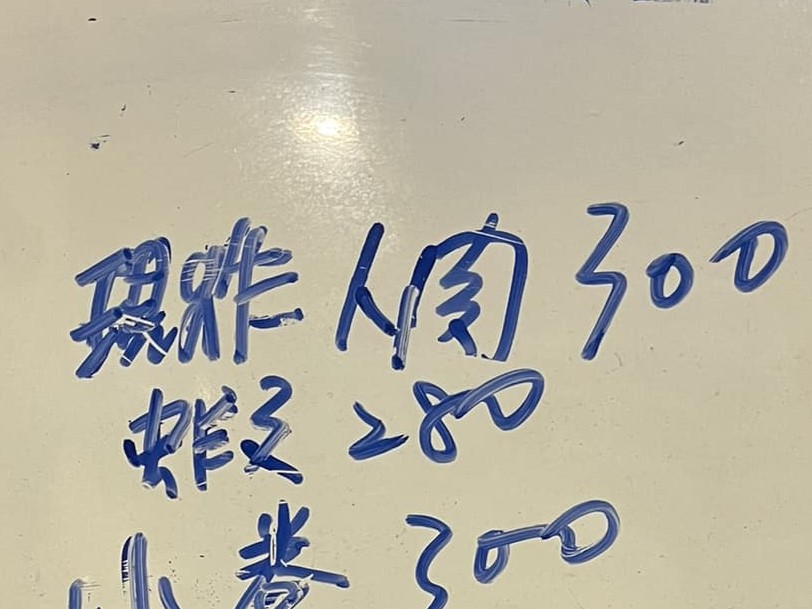 現炸人肉300
蝦280
小卷300